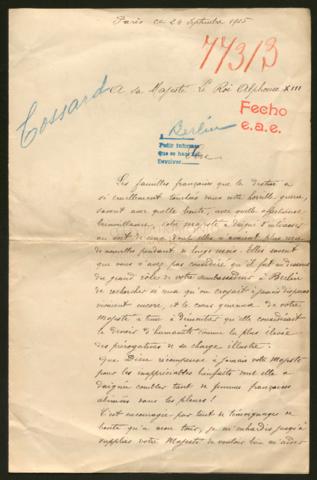 Paris ce 24 Septembre 1915
7731/3
Cossard
A sa Majesté Le Roi Alphonse XIII
Fecho
e.a.e.
Berlin
Pedir informes
Que se haga
Devolver
Les familles françaises que le destin a
si cruellement touchées dans cette horrible guerre,
savent avec quelle bonté, avec quelle
bienveillance, votre majesté a daigné s'intéresser
au sort de ceux dont elles n'avaient plus reçu
de nouvelles pendant de longs mois. Elles savent
que vous n'avez pas considéré qu'il fut au dessous
du grand rôle de votre ambassadeur à Berlin
de rechercher si ceux qu'on croyait à jamais disparus
vivaient encore, et le cœur généreux de votre
Majesté a tenu à démontrer qu'elle considérait
le devoir d'humanité comme la plus élevée
des prérogatives de sa charge illustre.
Que Dieu récompense à jamais votre Majesté
pour les inappréciables bienfaits dont elle a
daigné combler tant de femmes françaises
abimées dans les pleurs !
C'est encouragée par tant de témoignages de
bonté qu'à mon tour, je m'enhardis jusqu'à
supplier votre Majesté de vouloir bien m'aider